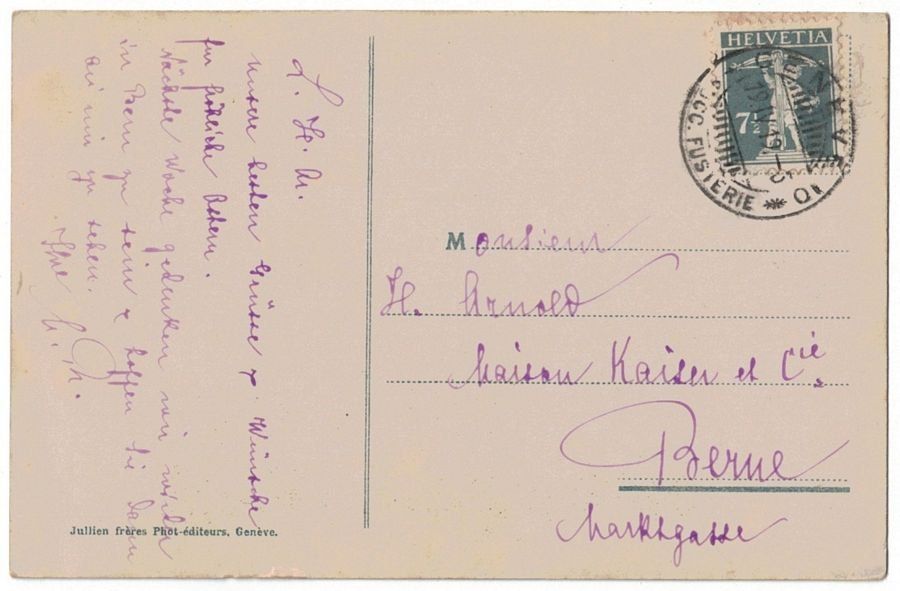 L. H. A.
Unsere besten Grüsse & Wünsche
für fröhliche Ostern.
Nächste Woche gedenken wir wieder
in Bern zu sein & hoffen Sie dann
bei uns zu sehen.
Ihre
HELVETIA
7½
GENÈVE
SUCC. FUSTERIE
Monsieur
H. Arnold
Maison Kaiser et Cie.
Berne
Marktgasse
Jullien frères Phot-éditeurs, Genève.